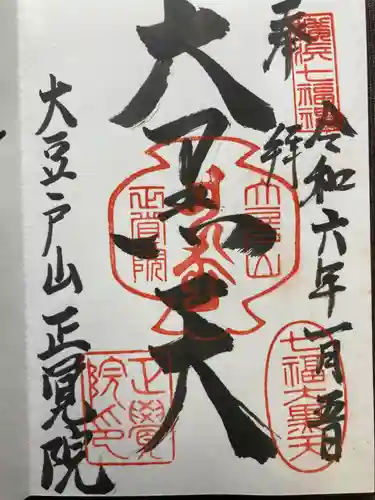 奉拝
令和六年一月五日
横浜七福神
大黒天
大豆戸山正覚院
大豆戸山
正覚院
七福大黒天
正覺院印